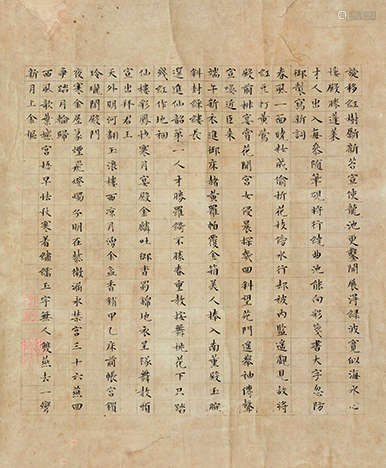 旋移紅樹斸新苔宣使龍池更鑿開展得綠波寬似海水心
樓殿勝蓬萊
才人出入每參隨筆硯將行繞曲池能向彩箋書大字忽防
御製寫新詩
春風一面曉妝成偷折花枝傍水行却被內監遙覷見故將
紅豆打黃鶯
殿前排宴賞花開宮女侵晨探幾回斜望花開遙舉袖傳聲
宣喚近臣來
端午新衣進御床赭黃羅帕覆金箱美人捧入南薰殿玉腕
斜封綵縷長
選進仙韶第一人才勝羅綺不勝春重教按舞桃花下只踏
殘紅作地裀
仙樓彩鳳捲寒月宴殿金麟吐御香蜀錦地衣呈隊舞教頭
宣出拜君王
天外明河翻玉浪樓西涼月湧金盆香銷甲乙床前帳宮鎖
玲瓏閣殿門
夜寒金屋篆煙飛燈燭分明在紫微漏永禁宮三十六燕回
爭踏月輪歸
西風葉遶宮梧早怯秋寒著繡襦玉宇無人雙燕去一彎
新月上金樞